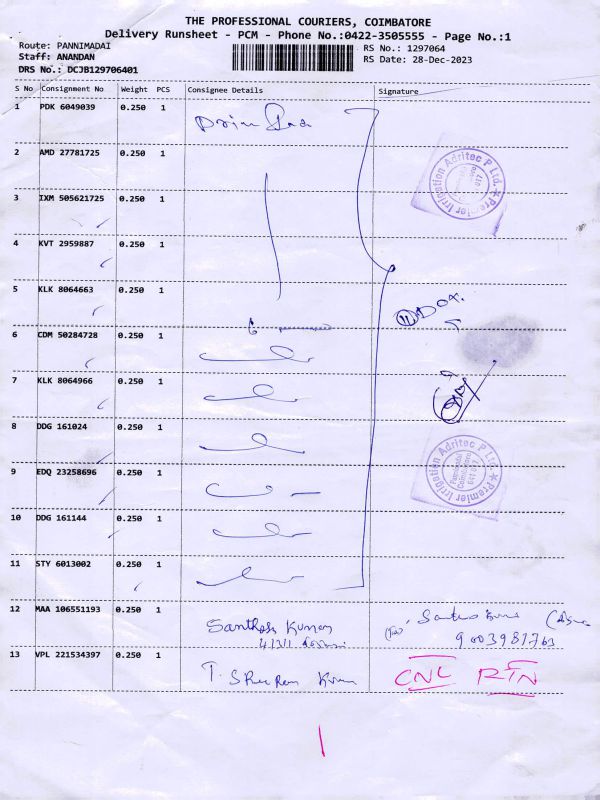 THE PROFESSIONAL COURIERS, COIMBATORE
Delivery Runsheet - PCM - Phone No.:0422-3505555 - Page No.:1
Route: PANNIMADAI
RS No.: 1297064
Staff: ANANDAN
RS Date: 28-Dec-2023
DRS No.: DCJB129706401
S No Consignment No Weight PCS Consignee Details Signature
1 PDK 6049039 0.250 1
2 AMD 27781725 0.250 1
3 IXM 505621725 0.250 1
4 KVT 2959887 0.250 1
5 KLK 8064663 0.250 1
6 CDM 50284728 0.250 1
7 KLK 8064966 0.250 1
8 DDG 161024 0.250 1
9 EDQ 23258696 0.250 1
10 DDG 161144 0.250 1
11 STY 6013002 0.250 1
12 MAA 106551193 0.250 1 Santhosh Kumar
9003981763
13 VPL 221534397 0.250 1 T. Sree Ram Kumar CNL RTN
11 DOX.
Premier Irrigation Adritec P Ltd.
Premier Irrigation Adritec P Ltd.
Pannimadai
Coimbatore
641 017